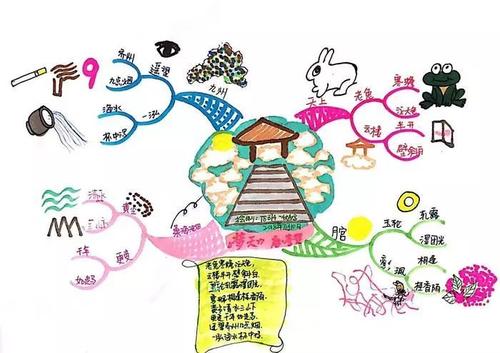 齐州
九点烟
遥望
9
海水
一泓
杯中泻
九州
天上
老兔
寒蟾
云楼
半开
壁斜白
梦天
清水
黄尘
三山下
千年
更变
如走马
玉轮
湿团光
相逢
桂香陌
老兔寒蟾泣天色，
云楼半开壁斜白。
玉轮轧露湿团光，
鸾珮相逢桂香陌。
黄尘清水三山下，
更变千年如走马。
遥望齐州九点烟，
一泓海水杯中泻。